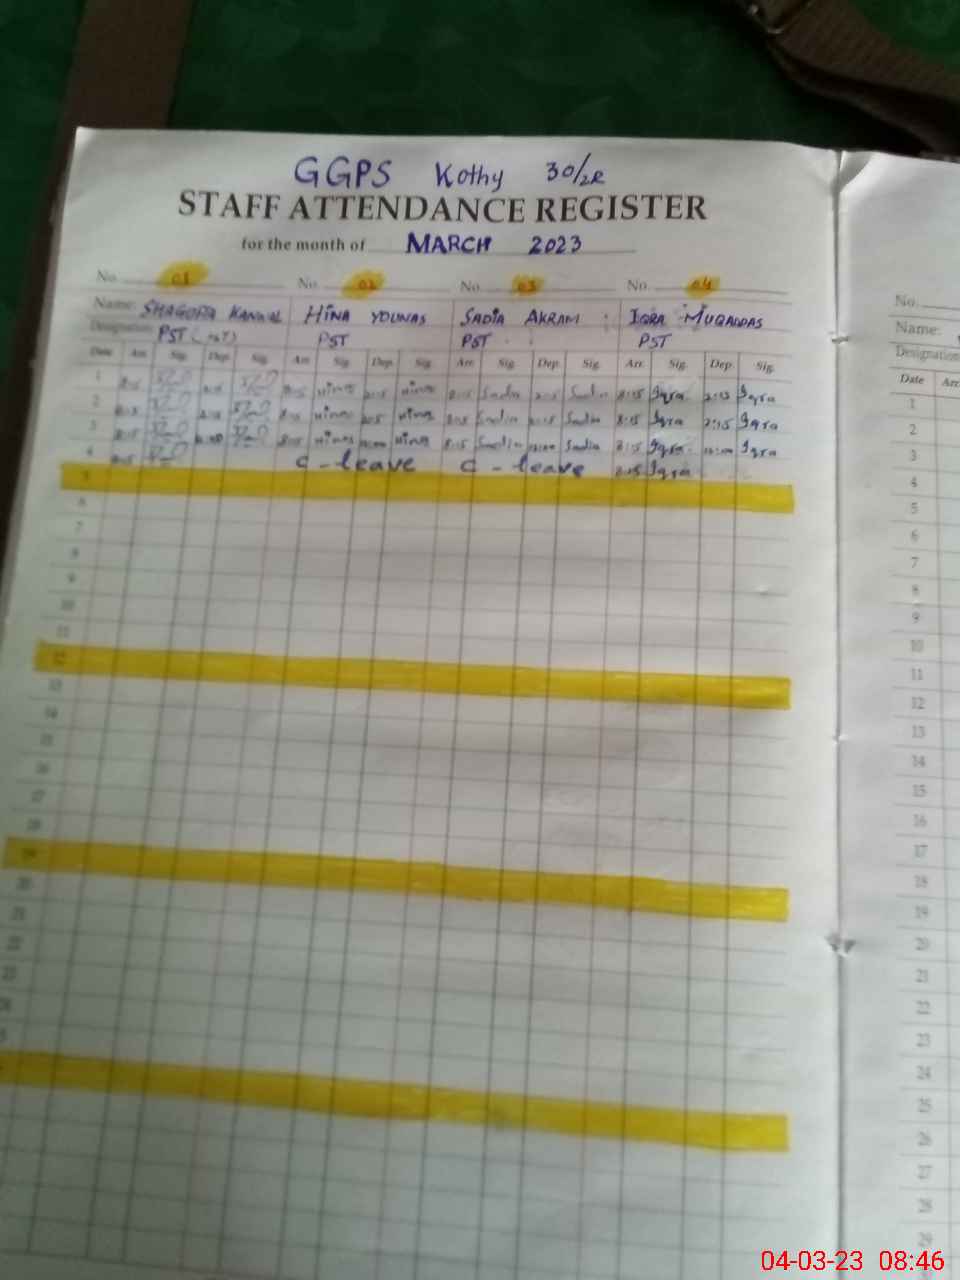 GGPS Kothy 30/2R
STAFF ATTENDANCE REGISTER
for the month of MARCH 2023
No. 01 No. 02 No. 03 No. 04
Name: SHAGUFTA KANWAL HINA YOUNAS SADIA AKRAM IQRA MUQADDAS
Designation: PST PST PST PST
Date Arr. Sig. Dep. Sig. Arr. Sig. Dep. Sig. Arr. Sig. Dep. Sig. Arr. Sig. Dep. Sig.
1 8:15 Hina Hina 8:15 Sadia Sadia 8:15 Iqra 2:15 Iqra
2 8:15 Hina Hina 8:15 Sadia Sadia 8:15 Iqra 2:15 Iqra
3 8:15 Hina 12:00 Hina 8:15 Sadia 12:00 Sadia 8:15 Iqra 12:00 Iqra
4 8:15 C-leave C-leave 8:15 Iqra
5
6
7
8
9
10
11
12
13
14
15
16
17
18
19
20
21
22
23
24
No.
Name:
Designation
Date Arr
1
2
3
4
5
6
7
8
9
10
11
12
13
14
15
16
17
18
19
20
21
22
23
24
25
26
27
28
29
04-03-23 08:46